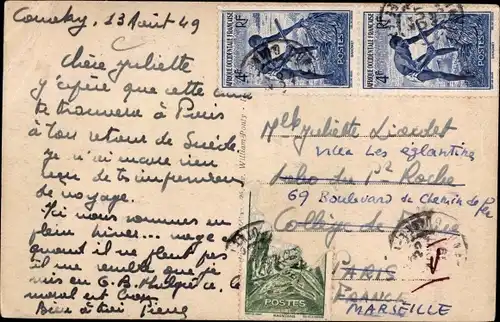 Conakry, 23 Août 49
Chère Juliette
J'espère que cette carte
te trouvera à Paris
à ton retour de Suède.
Je n'ai encore rien
reçu de tes impressions
de voyage.
Ici nous sommes en
plein hiver...
quand il ne pleut pas
il me semble que je
suis en G.B.
moral est bon
Bien à toi Pierre
RF
4F
AFRIQUE OCCIDENTALE FRANÇAISE
POSTES
RF
4F
AFRIQUE OCCIDENTALE FRANÇAISE
POSTES
William Ponty
Mlle Juliette
Villa Les églantines
Labo du Pr Roche
69 Boulevard du Chemin de Fer
Collège de France
PARIS
FRANCE
MARSEILLE
POSTES